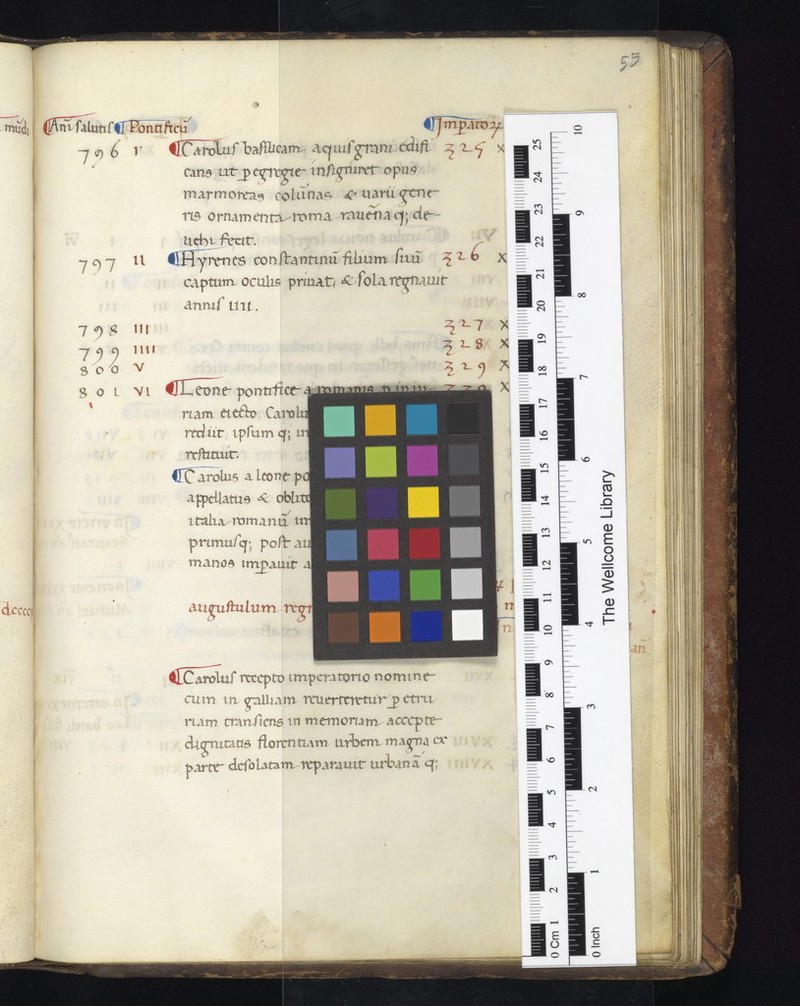 55
Añi salutis Pontificũ Jmpatoꝝ
796 I Carolus basilicam aquisgrani edifi 325 X
cans ut ꝑ egregie insigniret opus
marmoreas colũnas & uarii gene
ris ornamenta roma rauẽna q; de
uehi fecit.
797 II Hyrenes constantinũ filium suũ 326 X
captum oculis priuat, & sola regnauit
annis IIII.
798 III 327 X
799 IIII 328 X
800 V 329 X
801 VI Leone pontifice a romanis X
riam eiecto Carolu
rediit, ipsum q; in
restituit.
Carolus a leone po
appellatus & oblite
italia romanũ im
primusq; post au
manos imꝑauit a
augustulum regn
Carolus recepto imperatorio nomine
cum in galliam reuerteretur ꝑ etru
riam transiens in memoriam accepte
dignitatis florentiam urbem magna ex
parte desolatam reparauit urbanã q;
The Wellcome Library
0 Cm 1 2 3 4 5 6 7 8 9 10 11 12 13 14 15 16 17 18 19 20 21 22 23 24 25
0 Inch 1 2 3 4 5 6 7 8 9 10